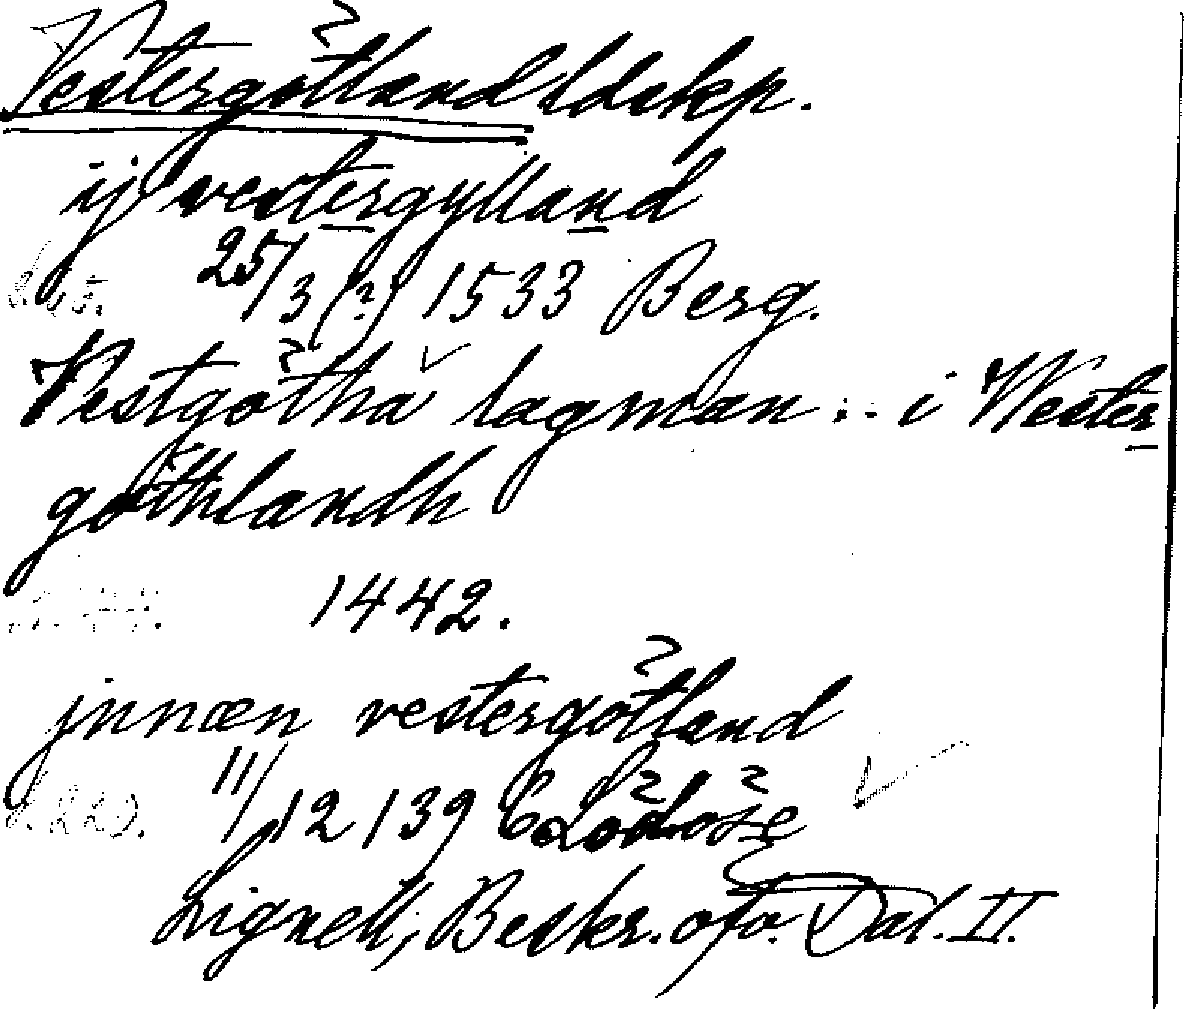 Vestergötland ldskp.
ij vestergylland
25/3 (?) 1533 Berg.
Vestgötha lagman .. i Wester
göthlandh
1442.
jnnæn vestergötland
11/12 1396 Lödöse
Lignell, Beskr. öfv. Dal. II.